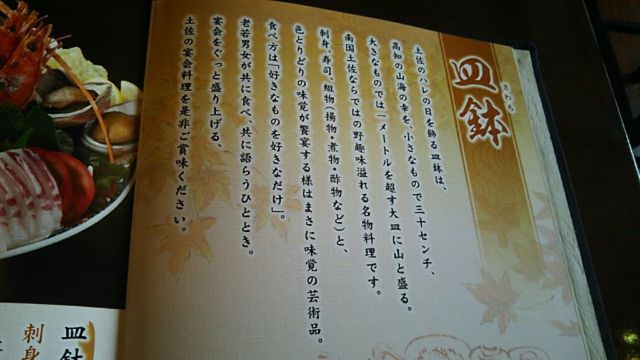 皿鉢
さわち
土佐のハレの日を飾る皿鉢は、
高知の山海の幸を、小さなもので三十センチ、
大きなものでは一メートルを超す大皿に山と盛る。
南国土佐ならではの野趣味溢れる名物料理です。
刺身、寿司、組物（揚物・煮物・酢物など）と、
色とりどりの味覚が饗宴する様はまさに味覚の芸術品。
食べ方は「好きなものを好きなだけ」。
老若男女が共に食べ、共に語らうひととき。
宴会をぐっと盛り上げる、
土佐の宴会料理を是非ご賞味ください。
皿鉢
刺身